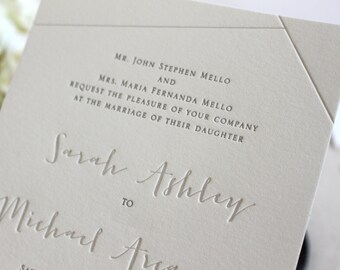 MR. JOHN STEPHEN MELLO
AND
MRS. MARIA FERNANDA MELLO
REQUEST THE PLEASURE OF YOUR COMPANY
AT THE MARRIAGE OF THEIR DAUGHTER
Sarah Ashley
TO
Michael